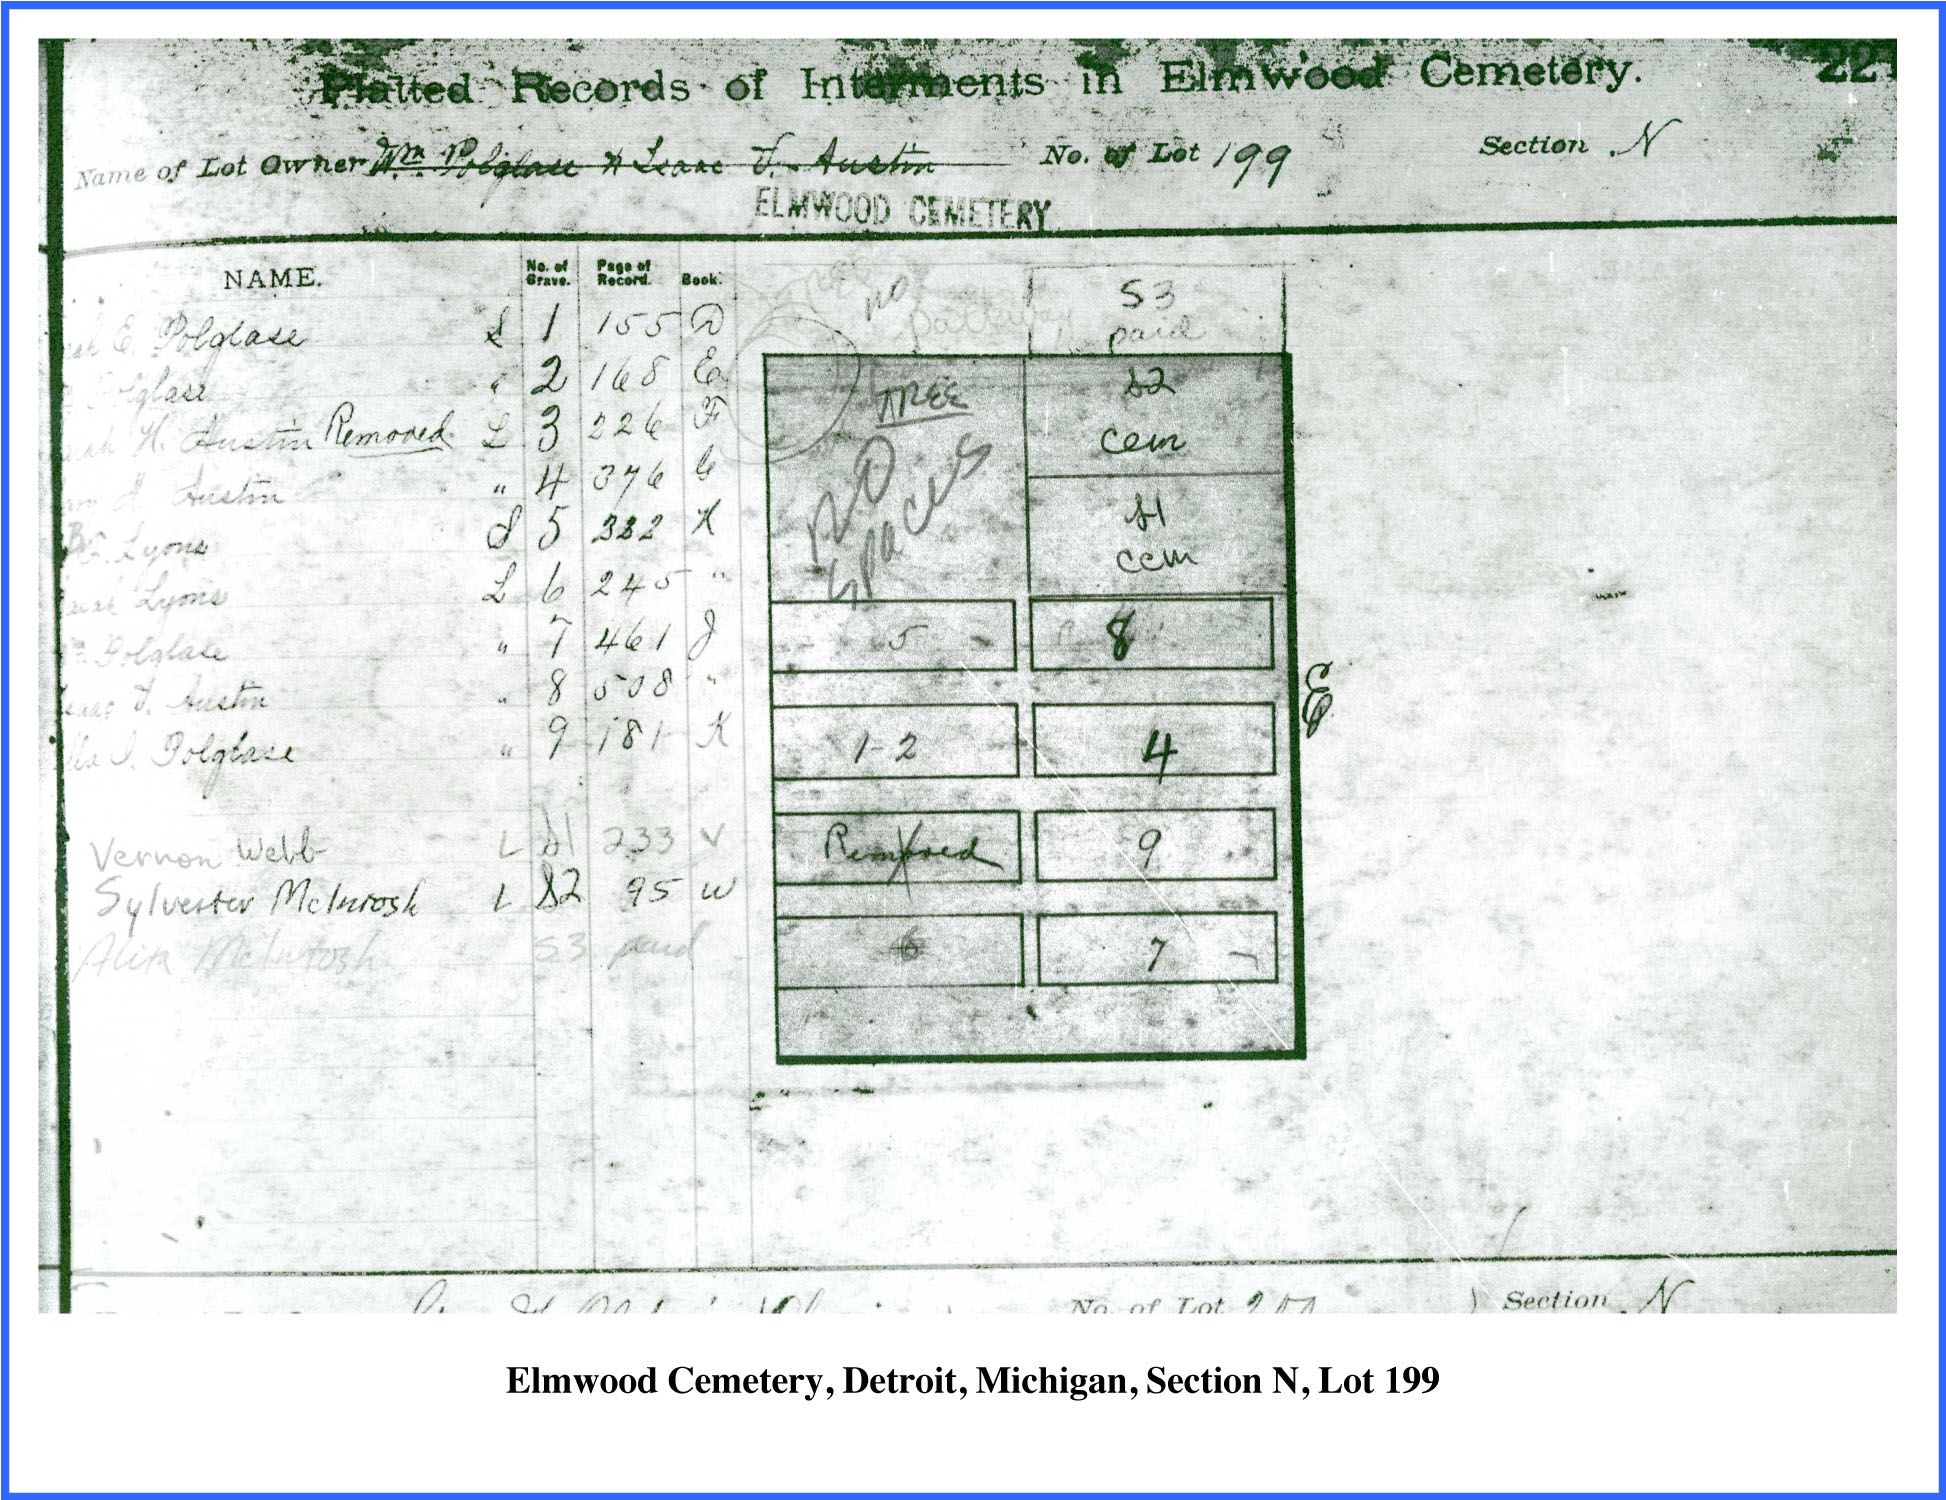 Platted Records of Interments in Elmwood Cemetery.
Name of Lot Owner Wm Polglase & Isaac T. Austin No. of Lot 199 Section N
ELMWOOD CEMETERY
NAME. No. of Grave. Page of Record. Book.
E. Polglase S 1 155 D
Polglase " 2 168 E
H. Austin Removed L 3 226 F
Austin " 4 376
Lyons S 5 332 K
Lyons L 6 245 "
Polglase " 7 461 J
Isaac T. Austin " 8 508 "
Polglase " 9 181 K
Vernon Webb L S1 233 V
Sylvester McIntosh L S2 95 W
Alita McIntosh S3 paid
NO pathway
S3
paid
TREE
NO
spaces
S2
cem
S1
cem
5 8
E
1-2 4
Removed 9
6 7
No. of Lot Section N
Elmwood Cemetery, Detroit, Michigan, Section N, Lot 199